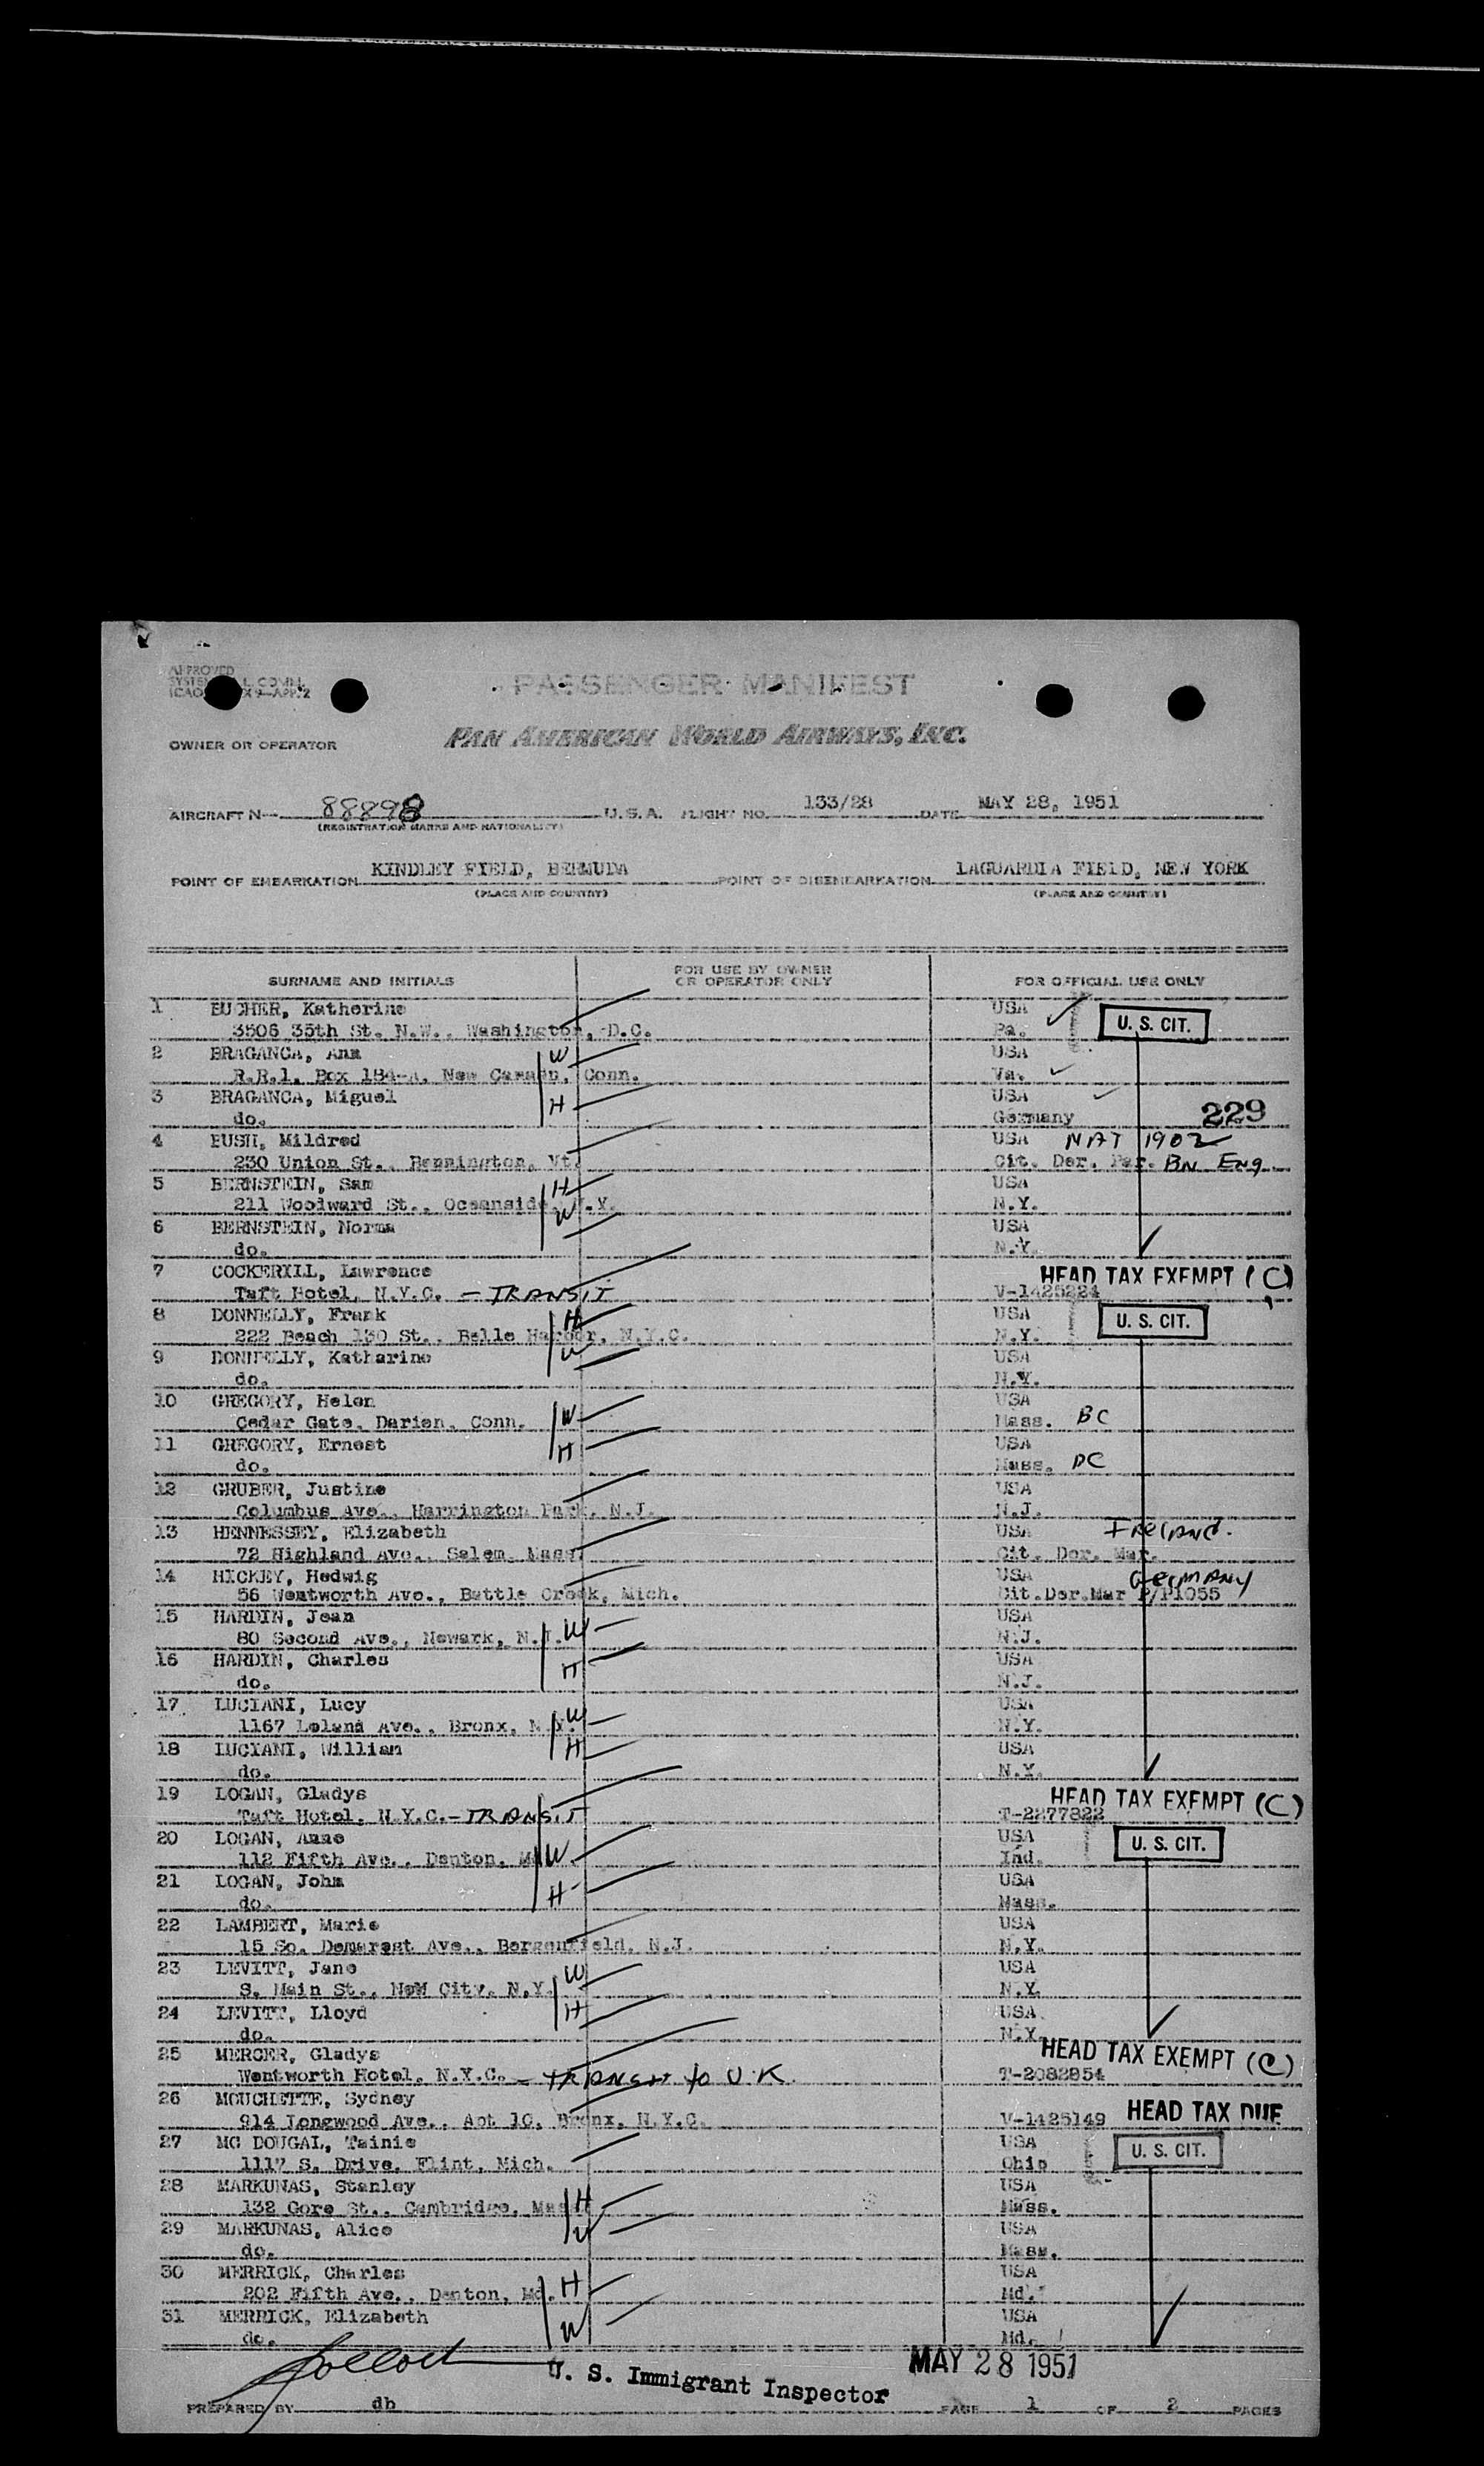 APPROVED
PASSENGER MANIFEST
OWNER OR OPERATOR
PAN AMERICAN WORLD AIRWAYS, INC.
AIRCRAFT N— 88898 U.S.A. FLIGHT NO. 133/28 DATE MAY 28, 1951
(REGISTRATION MARKS AND NATIONALITY)
POINT OF EMBARKATION KINDLEY FIELD, BERMUDA POINT OF DISEMBARKATION LAGUARDIA FIELD, NEW YORK
(PLACE AND COUNTRY) (PLACE AND COUNTRY)
SURNAME AND INITIALS FOR USE BY OWNER OR OPERATOR ONLY FOR OFFICIAL USE ONLY
1 BUCHER, Katherine USA
3506 35th St. N.W., Washington, D.C. Pa. U. S. CIT.
2 BRAGANCA, Ann W USA
R.R.1, Box 184-A, New Canaan, Conn. Va.
3 BRAGANCA, Miguel H USA
do. Germany 229
4 BUSH, Mildred USA NAT 1902
230 Union St., Bennington, Vt. Cit. Der. Par. BN ENG
5 BERNSTEIN, Sam H USA
211 Woodward St., Oceanside, N.Y. W N.Y.
6 BERNSTEIN, Norma USA
do. N.Y.
7 COCKERILL, Lawrence HEAD TAX EXEMPT (C)
Taft Hotel, N.Y.C. - TRANSIT V-1425224
8 DONNELLY, Frank H USA U. S. CIT.
222 Beach 130 St., Belle Harbor, N.Y.C. N.Y.
9 DONNELLY, Katharine W USA
do. N.Y.
10 GREGORY, Helen USA
Cedar Gate, Darien, Conn. W Mass. BC
11 GREGORY, Ernest H USA
do. Mass. DC
12 GRUBER, Justine USA
Columbus Ave., Harrington Park, N.J. N.J.
13 HENNESSEY, Elizabeth USA IRELAND.
72 Highland Ave., Salem, Mass. Cit. Der. Mar.
14 HICKEY, Hedwig USA GERMANY
56 Wentworth Ave., Battle Creek, Mich. Cit.Der.Mar P/P1055
15 HARDIN, Jean USA
80 Second Ave., Newark, N.J. W N.J.
16 HARDIN, Charles H USA
do. N.J.
17 LUCIANI, Lucy W USA
1167 Leland Ave., Bronx, N.Y. N.Y.
18 LUCIANI, William H USA
do. N.Y.
19 LOGAN, Gladys HEAD TAX EXEMPT (C)
Taft Hotel, N.Y.C. - TRANSIT T-2277822
20 LOGAN, Anne USA U. S. CIT.
112 Fifth Ave., Denton, Md W Ind.
21 LOGAN, John H USA
do. Mass.
22 LAMBERT, Marie USA
15 So. Demarest Ave., Bergenfield, N.J. N.Y.
23 LEVITT, Jane W USA
S. Main St., New City, N.Y. N.Y.
24 LEVITT, Lloyd H USA
do. N.Y.
25 MERCER, Gladys HEAD TAX EXEMPT (C)
Wentworth Hotel, N.Y.C. - TRANSIT to U.K. T-2082854
26 MOUCHETTE, Sydney
914 Longwood Ave., Apt 1C, Bronx, N.Y.C. V-1425149 HEAD TAX DUE
27 MC DOUGAL, Tainie USA U. S. CIT.
1117 S. Drive, Flint, Mich. Ohio
28 MARKUNAS, Stanley H USA
132 Gore St., Cambridge, Mass. Mass.
29 MARKUNAS, Alice W USA
do. Mass.
30 MERRICK, Charles H USA
202 Fifth Ave., Denton, Md. Md.
31 MERRICK, Elizabeth W USA
do. Md.
U. S. Immigrant Inspector MAY 28 1951
PREPARED BY db PAGE 1 OF 2 PAGES